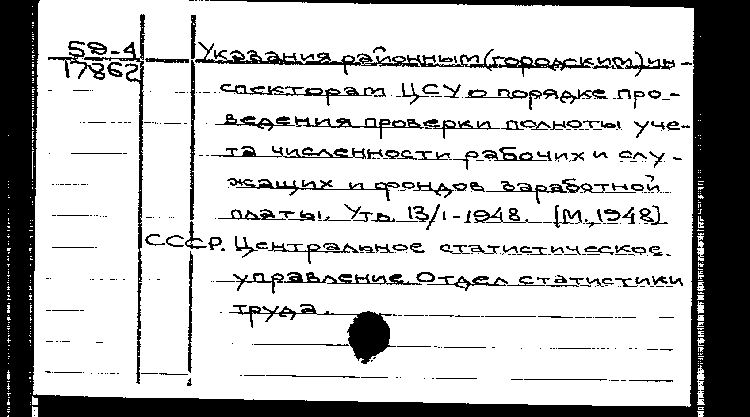 59-4
17862
Указания районным (городским) ин-
спекторам ЦСУ о порядке про-
ведения проверки полноты уче-
та численности рабочих и слу-
жащих и фондов заработной
платы. Утв. 13/I-1948. [М., 1948]
СССР. Центральное статистическое
управление. Отдел статистики
труда.